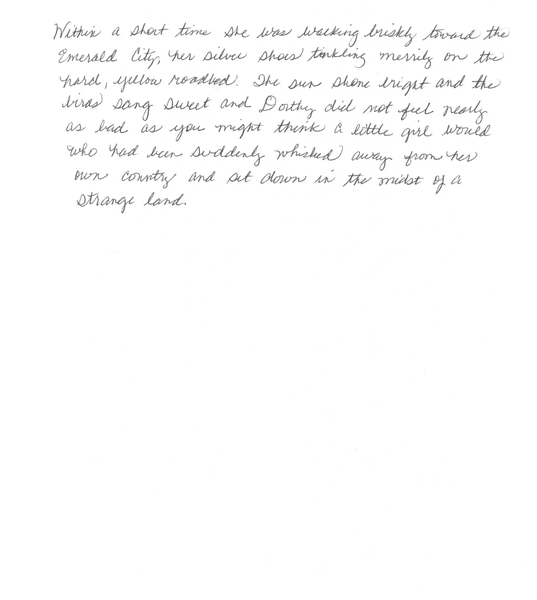 Within a short time she was walking briskly toward the
Emerald City, her silver shoes tinkling merrily on the
hard, yellow roadbed. The sun shone bright and the
birds sang sweet and Dorthy did not feel nearly
as bad as you might think a little girl would
who had been suddenly whisked away from her
own country and set down in the midst of a
strange land.